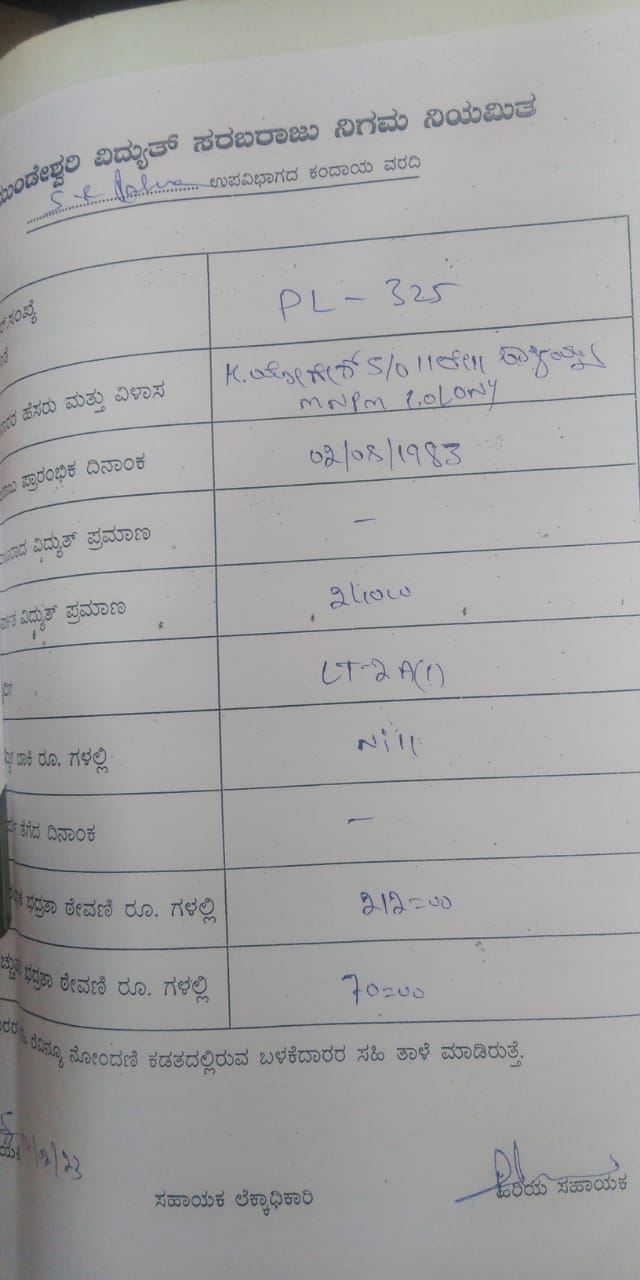 ಮುಂಡೇಶ್ವರಿ ವಿದ್ಯುತ್ ಸರಬರಾಜು ನಿಗಮ ನಿಯಮಿತ
ಉಪವಿಭಾಗದ ಕಂದಾಯ ವರದಿ
ಸಂಖ್ಯೆ
PL - 325
ಹೆಸರು ಮತ್ತು ವಿಳಾಸ
K. ಯೋಗೇಶ್ S/O
MNPM COLONY
ಪ್ರಾರಂಭಿಕ ದಿನಾಂಕ
02/08/1983
ವಿದ್ಯುತ್ ಪ್ರಮಾಣ
-
ವಿದ್ಯುತ್ ಪ್ರಮಾಣ
LT-2 A(1)
ಬಾಕಿ ರೂ. ಗಳಲ್ಲಿ
Nill
ತೆಗೆದ ದಿನಾಂಕ
-
ಭದ್ರತಾ ಠೇವಣಿ ರೂ. ಗಳಲ್ಲಿ
212=00
ಭದ್ರತಾ ಠೇವಣಿ ರೂ. ಗಳಲ್ಲಿ
70=00
ರೆವಿನ್ಯೂ ನೋಂದಣಿ ಕಡತದಲ್ಲಿರುವ ಬಳಕೆದಾರರ ಸಹಿ ತಾಳೆ ಮಾಡಿರುತ್ತೆ.
ಸಹಾಯಕ ಲೆಕ್ಕಾಧಿಕಾರಿ
ಹಿರಿಯ ಸಹಾಯಕ